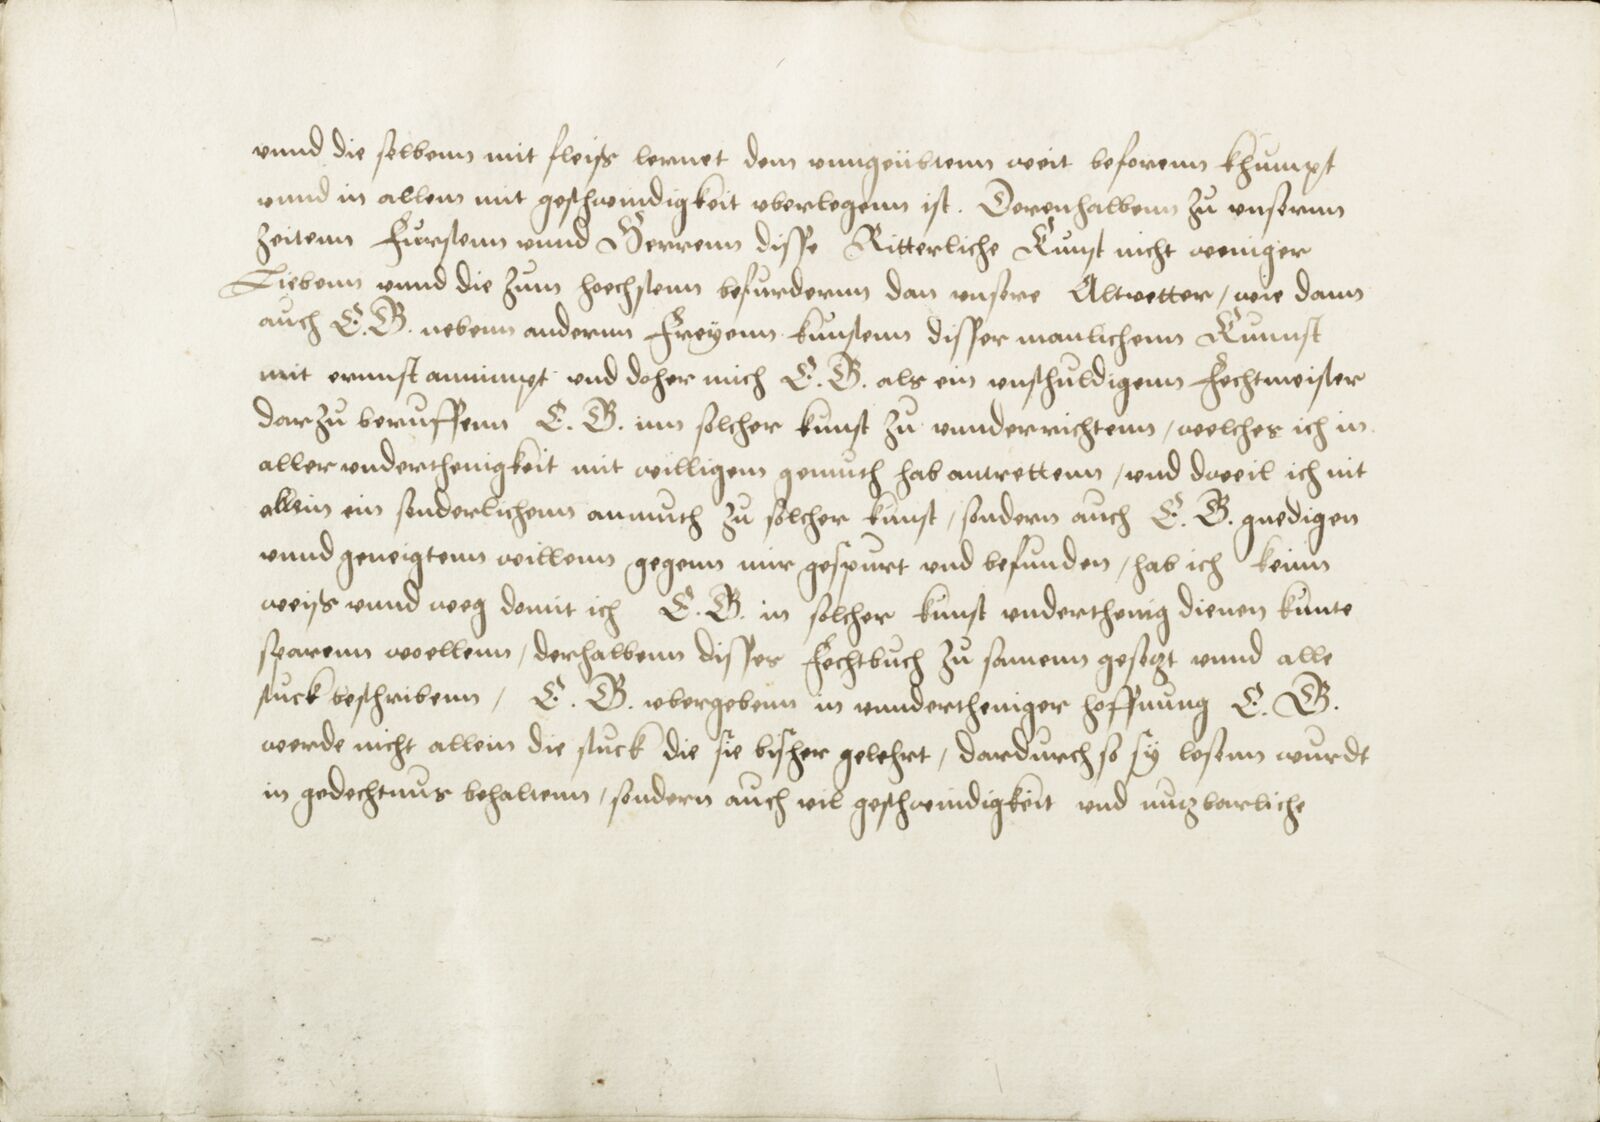 vnnd die selbenn mit fleiss lernet dem vnngeübtenn weit beforenn khumpt
vnnd in allem mit geschwindigkeit vberlegenn ist. Derenhalbenn zu vnsernn
zeitenn Furstenn vnnd Herrenn disse Ritterliche Kunst nicht weniger
Liebenn vnnd die zum hoechstenn befurdernn dan vnsere Altvetter / wie dann
auch E. G. nebenn andernn Freyenn kunstenn disser manlichenn Kunnst
mit ernnst annimpt vnd doher mich E. G. als ein vnschuldigenn Fechtmeister
darzu beruffenn E. G. inn solcher kunst zu vnnderrichtenn / welches ich in
aller vnderthenigkeit mit willigem gemuth hab antrettenn / vnd dweil ich nit
allein ein sonderlichenn anmuth zu solcher kunst / sondern auch E. G. gnedigen
vnnd geneigtenn willenn gegenn mir gespurt vnd befunden / hab ich keinn
weiss vnnd weg domit ich E. G. in solcher kunst vnderthenig dienen kunte
sparenn woellenn / derhalbenn disses Fechtbuch zu samenn gesetzt vnnd alle
stuck beschribenn / E. G. vbergebenn in vnndertheniger hoffnung E. G.
werde nicht allein die stuck die sie bisher gelehrt / dardurch so sy lesenn wurdt
in gedechtnus behaltenn / sondern auch vil geschwindigkeit vnd nutzbarliche